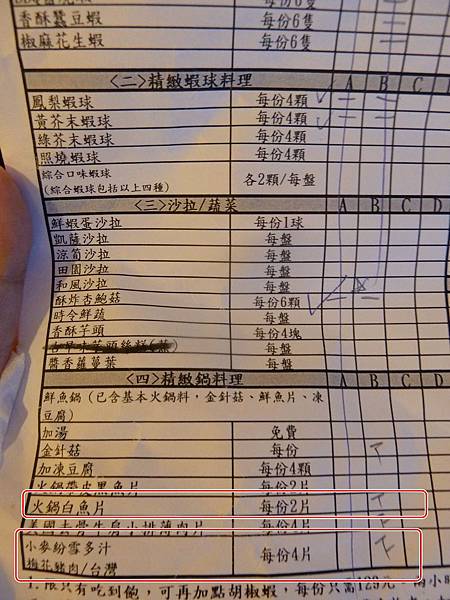 香酥蠶豆蝦 每份6隻
椒麻花生蝦 每份6隻
〈二〉精緻蝦球料理 A B C
鳳梨蝦球 每份4顆
黃芥末蝦球 每份4顆
綠芥末蝦球 每份4顆
照燒蝦球 每份4顆
綜合口味蝦球
(綜合蝦球包括以上四種) 各2顆/每盤
〈三〉沙拉/蔬菜 A B C D
鮮蝦蛋沙拉 每份1球
凱薩沙拉 每盤
涼筍沙拉 每盤
田園沙拉 每盤
和風沙拉 每盤
酥炸杏鮑菇 每份6顆
時令鮮蔬 每盤
香酥芋頭 每份4塊
每盤
醬香蘿蔓葉 每盤
〈四〉精緻鍋料理 A B C D
鮮魚鍋(已含基本火鍋料,金針菇、鮮魚片、凍
豆腐)
加湯 免費
金針菇 每份
加凍豆腐 每份4顆
火鍋帶皮黑魚片 每份2片
火鍋白魚片 每份2片
美國去骨牛肩小排薄肉片 每份4片
小麥紛雪多汁
梅花豬肉/台灣 每份4片
1. 限只有吃到飽,可再加點胡椒蝦,每份只需129元。